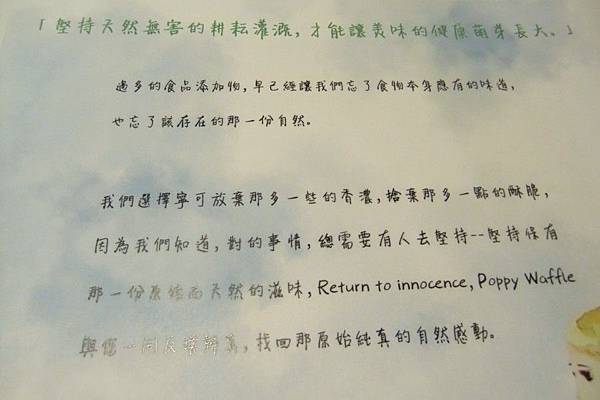 「堅持天然無害的耕耘灌溉，才能讓美味的健康萌芽長大。」
過多的食品添加物，早已經讓我們忘了食物本身應有的味道，
也忘了該存在的那一份自然。
我們選擇寧可放棄那多一些的香濃，捨棄那多一點的酥脆，
因為我們知道，對的事情，總需要有人去堅持--堅持保有
那一份原始而天然的滋味，Return to innocence, Poppy Waffle
與您一同反璞歸真，找回那原始純真的自然感動。